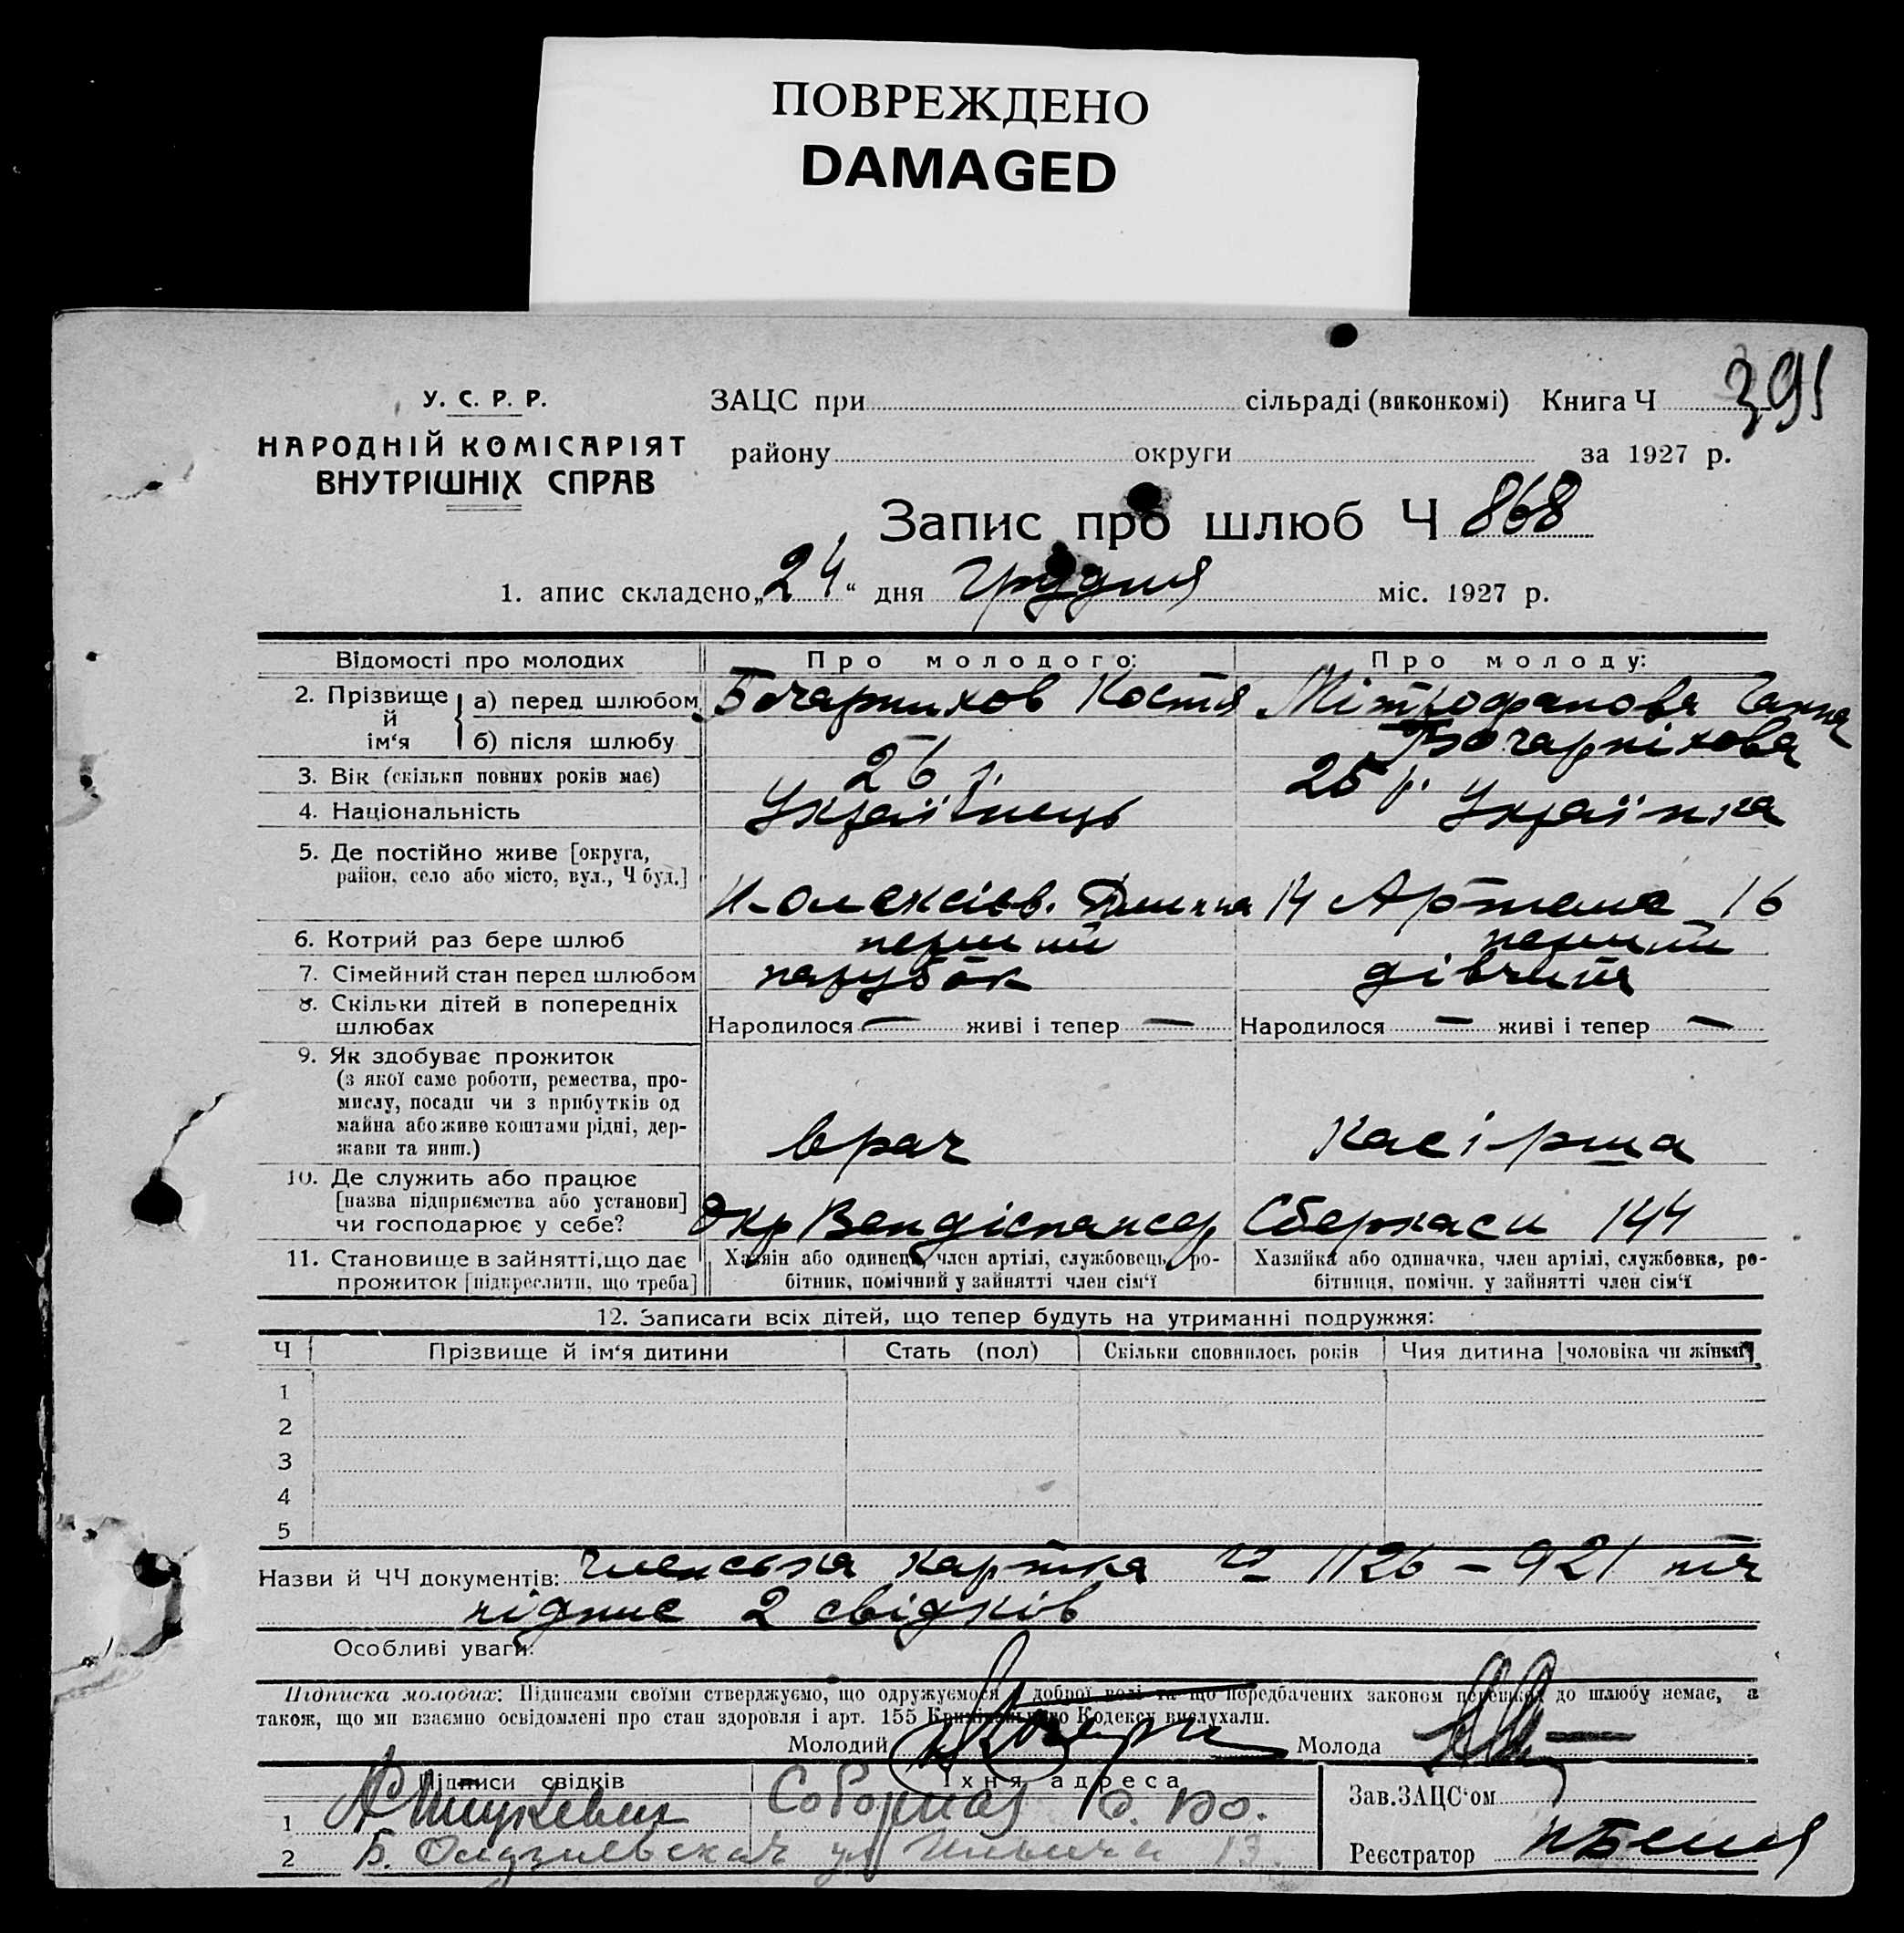 ПОВРЕЖДЕНО
DAMAGED
391
У. С. Р. Р.
НАРОДНІЙ КОМІСАРІЯТ
ВНУТРІШНІХ СПРАВ
ЗАЦС при сільраді (виконкомі) Книга Ч
району округи за 1927 р.
Запис про шлюб Ч 868
1. апис складено „24“ дня грудня міс. 1927 р.
Відомості про молодих
Про молодого:
Про молоду:
2. Прізвище й ім‘я
а) перед шлюбом
Бочарников Костя
Мітрофанова Ганна
б) після шлюбу
Бочарнікова
3. Вік (скільки повних років має)
26 р.
25 р.
4. Національність
Українець
Українка
5. Де постійно живе [округа,
район, село або місто, вул., Ч буд.]
14 Артема 16
6. Котрий раз бере шлюб
перший
перший
7. Сімейний стан перед шлюбом
парубок
дівчина
8. Скільки дітей в попередніх
шлюбах
Народилося — живі і тепер —
Народилося — живі і тепер —
9. Як здобуває прожиток
(з якої саме роботи, ремества, про-
мислу, посади чи з прибутків од
майна або живе коштами рідні, дер-
жави та инш.)
врач
касірша
10. Де служить або працює
[назва підприємства або установи]
чи господарює у себе?
Окр Вендіспансер
Сберкаси 144
11. Становище в зайнятті, що дає
прожиток [підкреслити, що треба]
Хазяїн або одинець, член артілі, службовець, ро-
бітник, помічний у зайнятті член сім‘ї
Хазяйка або одиначка, член артілі, службовка, ро-
бітниця, помічн. у зайнятті член сім‘ї
12. Записати всіх дітей, що тепер будуть на утриманні подружжя:
Ч
Прізвище й ім‘я дитини
Стать (пол)
Скільки сповнилось років
Чия дитина [чоловіка чи жінки]
1
2
3
4
5
Назви й ЧЧ документів: членська картка 1126 – 921
підпис 2 свідків
Особливі уваги:
Підписка молодих: Підписами своїми стверджуємо, що одружуємося з доброї волі та що передбачених законом перешкод до шлюбу немає, а
також, що ми взаємно освідомлені про стан здоровля і арт. 155 Криміналього Кодексу вислухали.
Молодий
Молода
Підписи свідків
Їхня адреса
1 Соборная
2
13
Зав. ЗАЦС‘ом
Реєстратор